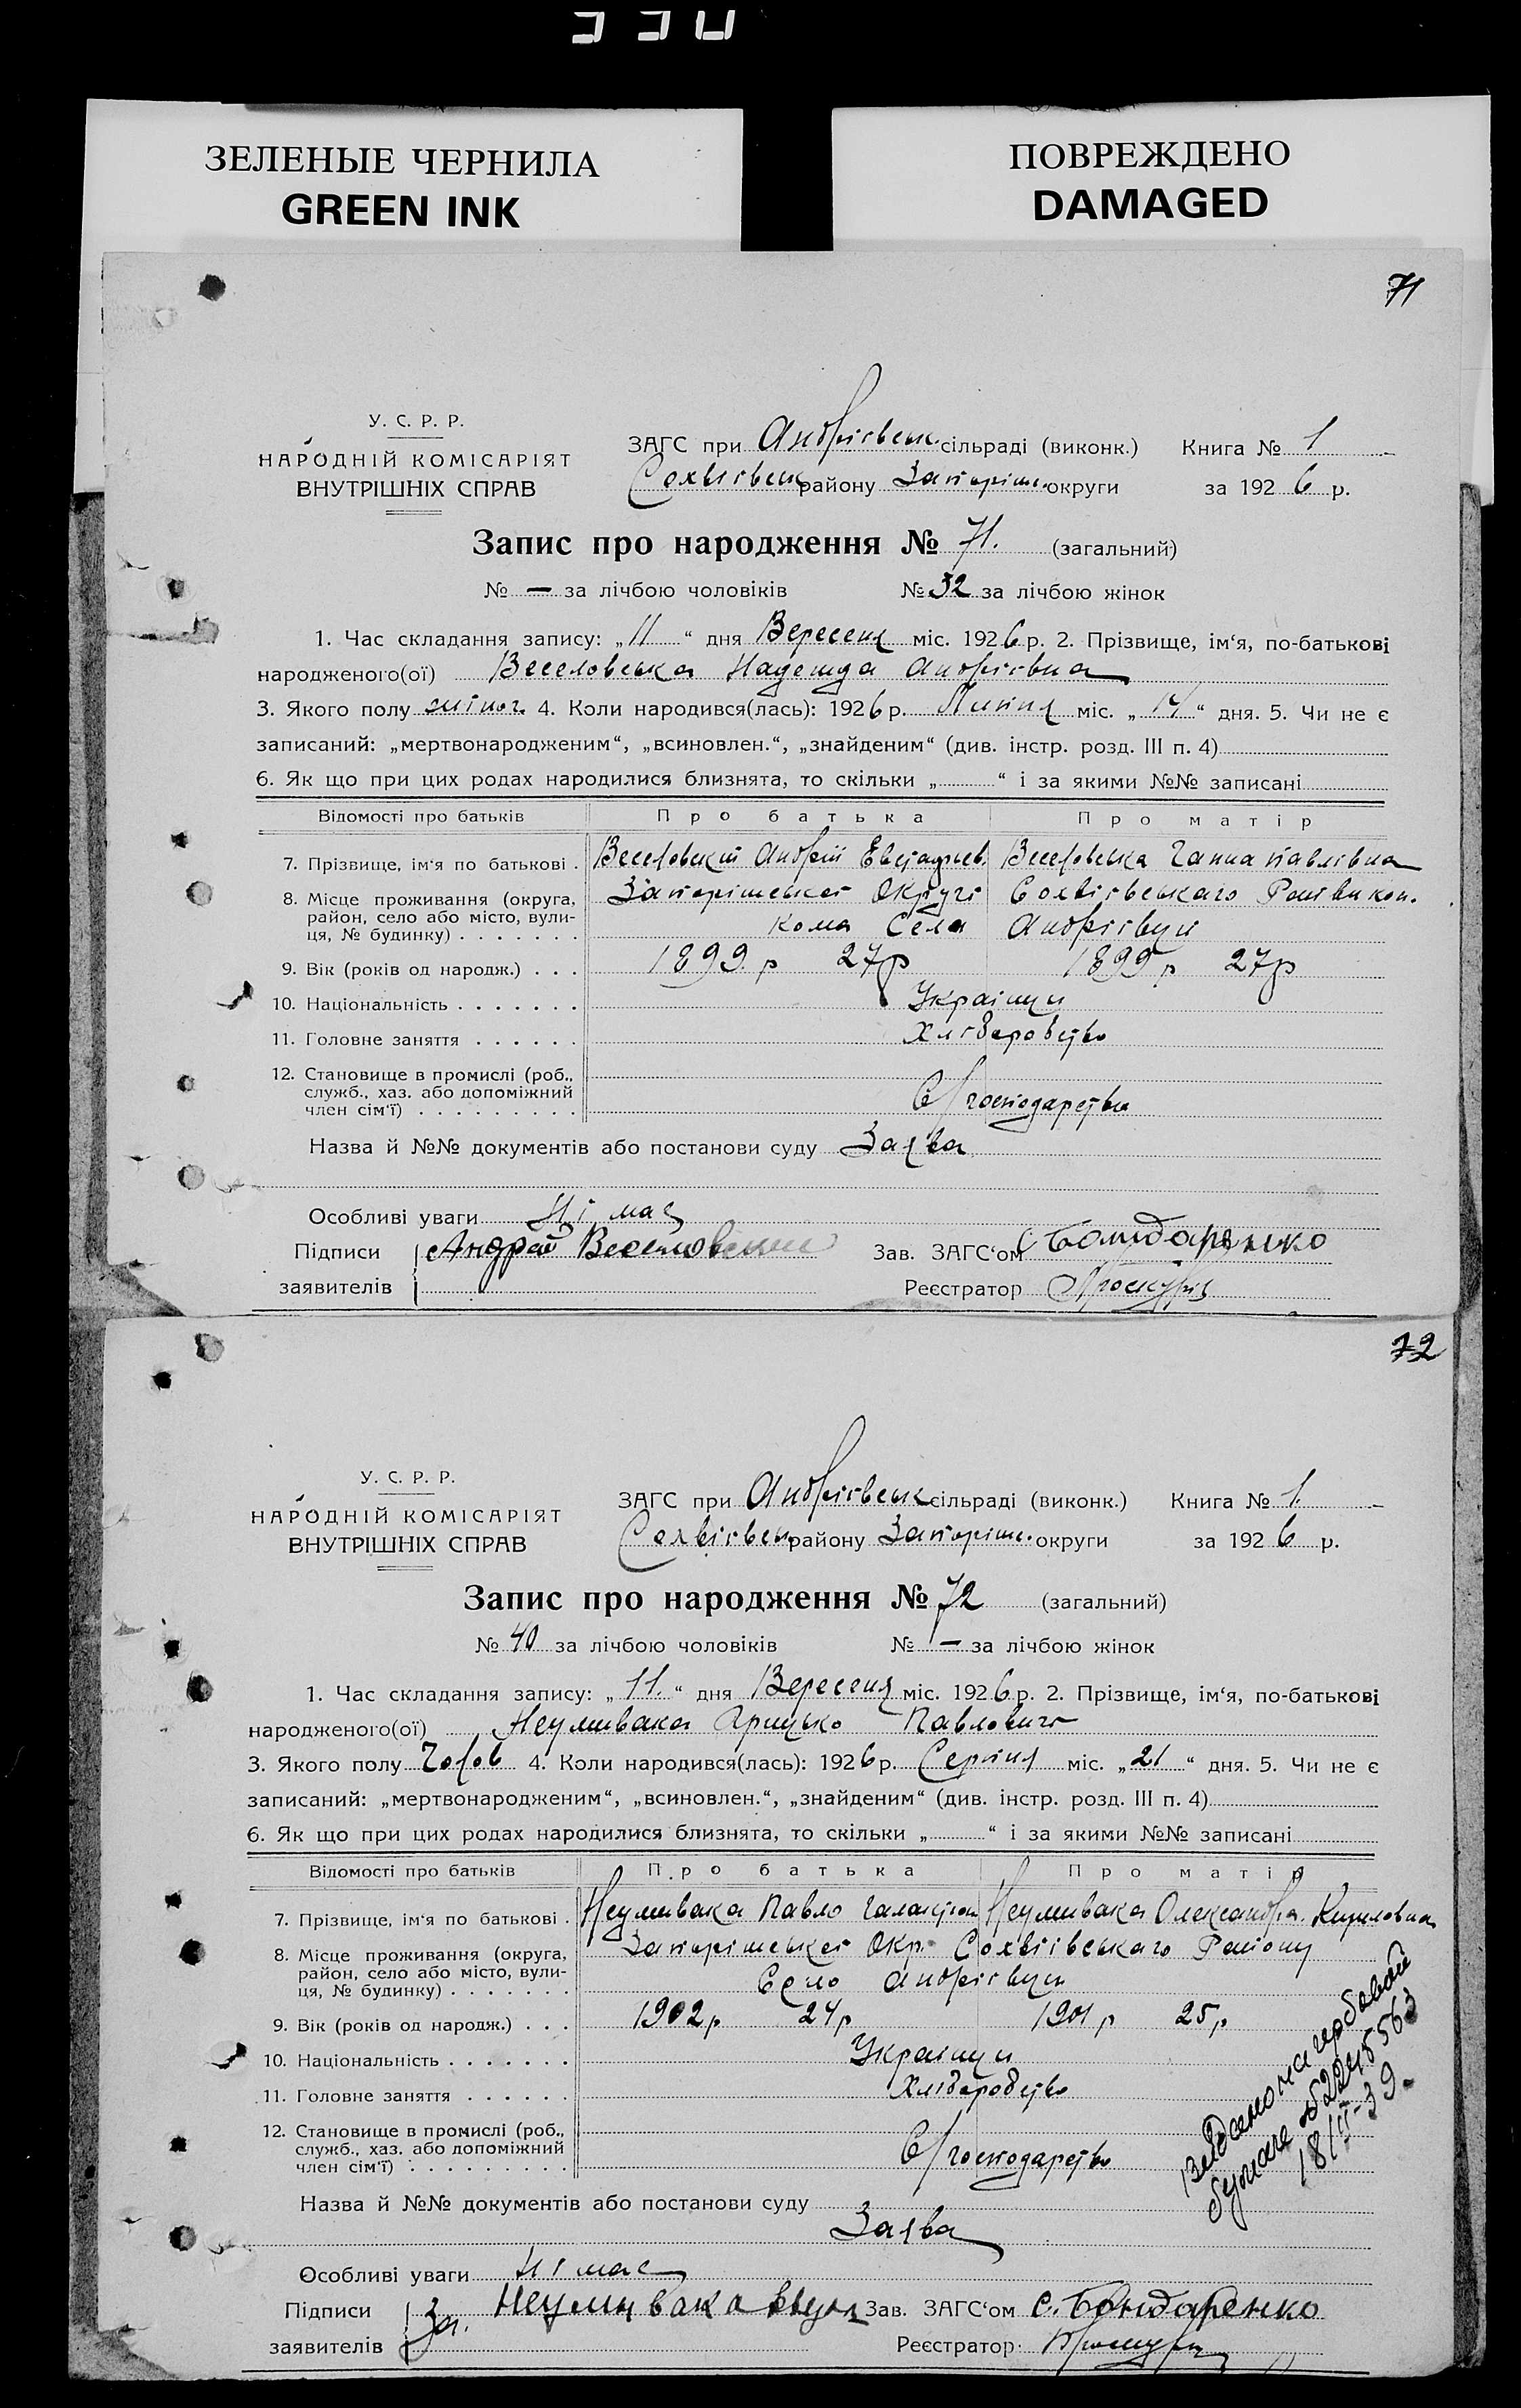 ЗЕЛЕНЫЕ ЧЕРНИЛА
GREEN INK
ПОВРЕЖДЕНО
DAMAGED
71
У. С. Р. Р.
НАРОДНІЙ КОМІСАРІЯТ
ВНУТРІШНІХ СПРАВ
ЗАГС при Андріївськ. сільраді (виконк.) Книга № 1
Софіївськ району Запоріж. округи за 1926 р.
Запис про народження № 71. (загальний)
№ — за лічбою чоловіків № 32 за лічбою жінок
1. Час складання запису: „11“ дня Вересня міс. 1926 р. 2. Прізвище, ім‘я, по-батькові
народженого(ої) Веселовська Надежда Андріівна
3. Якого полу жіноч. 4. Коли народився(лась): 1926 р. Липня міс. „14“ дня. 5. Чи не є
записаний: „мертвонародженим“, „всиновлен.“, „знайденим“ (див. інстр. розд. III п. 4)
6. Як що при цих родах народилися близнята, то скільки „ “ і за якими №№ записані
Відомості про батьків Про батька Про матір
7. Прізвище, ім‘я по батькові . Веселовський Андрій Веселовська Ганна Павлівна
8. Місце проживання (округа, район, село або місто, вулиця, № будинку) . . . . . . . Запоріжської Округі Софіівського Райвикон.
кома Села Андріівци
9. Вік (років од народж.) . . . 1899 р 27 р 1899 р 27 р
10. Національність . . . . . . . Українци
11. Головне заняття . . . . . . Хліборобство
12. Становище в промислі (роб., служб., хаз. або допоміжний член сім‘ї) . . . . . . . . . С/господарства
Назва й №№ документів або постанови суду Заява
Особливі уваги Німає
Підписи заявителів Андрей Веселовский Зав. ЗАГС‘ом С Бондаренко
Реєстратор
72
У. С. Р. Р.
НАРОДНІЙ КОМІСАРІЯТ
ВНУТРІШНІХ СПРАВ
ЗАГС при Андріївськ сільраді (виконк.) Книга № 1.
Софіївськ району Запоріж. округи за 1926 р.
Запис про народження № 72 (загальний)
№ 40 за лічбою чоловіків № — за лічбою жінок
1. Час складання запису: „11.“ дня Вересня міс. 1926 р. 2. Прізвище, ім‘я, по-батькові
народженого(ої) Неумивака Грицько Павлович
3. Якого полу Чолов 4. Коли народився(лась): 1926 р. Серпня міс. „21“ дня. 5. Чи не є
записаний: „мертвонародженим“, „всиновлен.“, „знайденим“ (див. інстр. розд. III п. 4)
6. Як що при цих родах народилися близнята, то скільки „ “ і за якими №№ записані
Відомості про батьків Про батька Про матір
7. Прізвище, ім‘я по батькові . Неумивака Павло Галактіон Неумивака Олександра Кириловна
8. Місце проживання (округа, район, село або місто, вулиця, № будинку) . . . . . . . Запоріжської Окр. Софіівського Району
Село Андріівци
9. Вік (років од народж.) . . . 1902 р 24 р 1901 р 25 р
10. Національність . . . . . . . Українци
11. Головне заняття . . . . . . Хліборобство
12. Становище в промислі (роб., служб., хаз. або допоміжний член сім‘ї) . . . . . . . . . С/господарство
Видано на гербовой
бумаге 18/II-39.
Назва й №№ документів або постанови суду
Заява
Особливі уваги Німає
Підписи заявителів За. Неумивака Зав. ЗАГС‘ом С. Бондаренко
Реєстратор